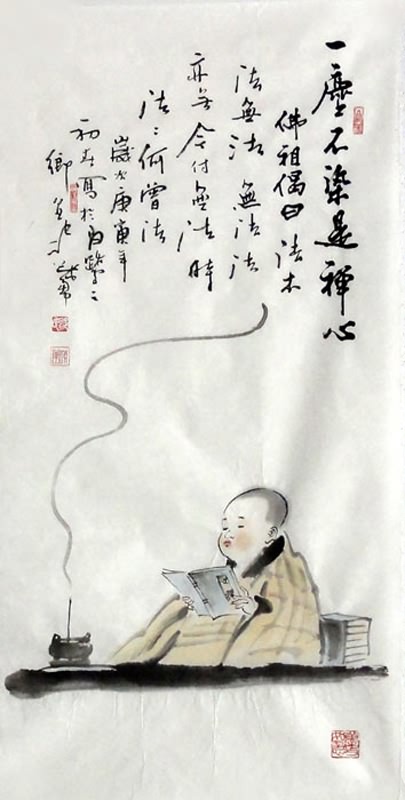 一塵不染是禪心
佛祖偈曰法本
法無法無法法
亦 今付無法時
法〻何曾法
歲次庚寅年
初春寫於
鄉